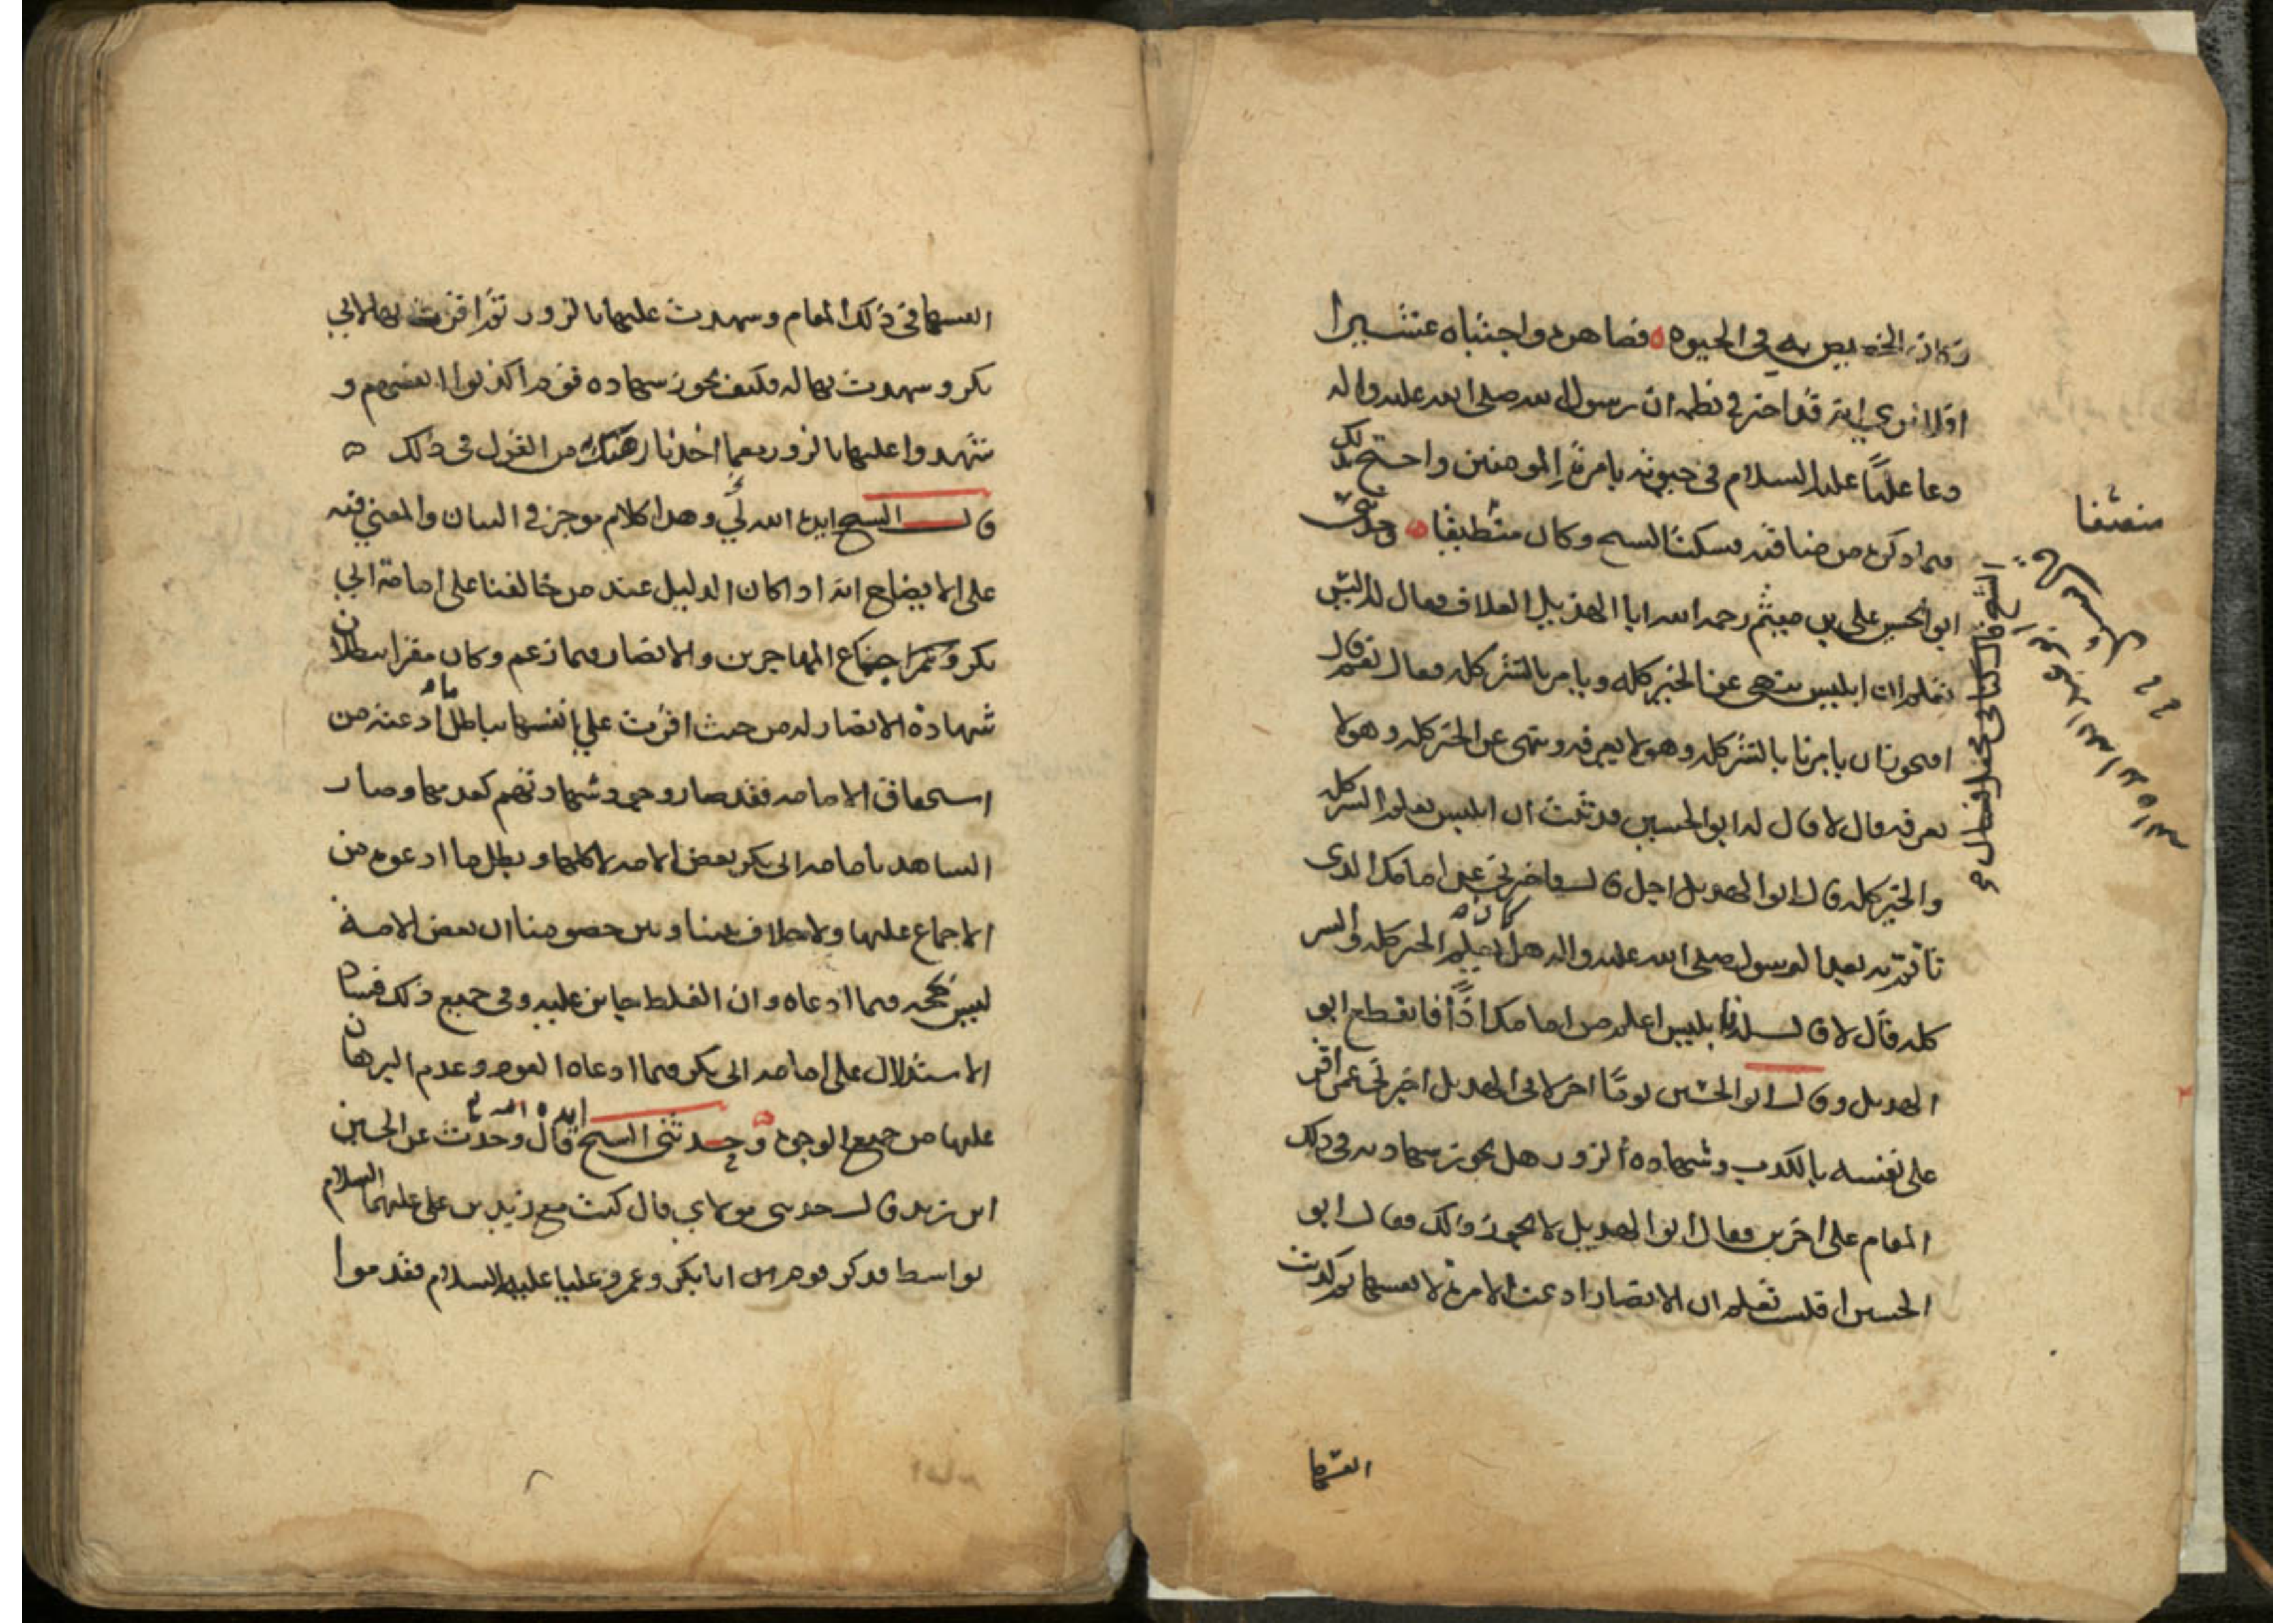 وكان الخصيص به في الحيوة فصاهره واجتباه عشيرا
افلا تري انه قد اخبر في نظمه ان رسول الله صلى الله عليه واله
دعا عليا عليه السلام في حيوته بامرة المومنين واحتج بذلك
فيما ذكره من مناقبه فسكت الشيخ وكان منطيقا وحدثني
ابو الحسن علي بن ميثم رحمه الله ابا الهذيل العلاف فقال له اليس
تعلم ان ابليس ينهى عن الخير كله ويامر بالشر كله فقال نعم قال
افيجوز ان يامرنا بالشر كله وهو لا يعرفه وينهى عن الخير كله وهو لا
يعرفه قال لا قال له ابو الحسن قد ثبت ان ابليس يعلم الشر كله
والخير كله قال ابو الهذيل اجل قال فاخبرني عن امامك الذي
تاتم به بعد الرسول صلى الله عليه واله هل يعلم الخير كله والشر
كله قال لا قال له فابليس اعلم من امامك اذا فانقطع ابو
الهذيل وقال ابو الحسن يوما اخر لابي الهذيل اخبرني عمن اقر
على نفسه بالكذب وشهادة الزور هل يجوز شهادته في ذلك
المقام على اخرين فقال ابو الهذيل لا يجوز ذلك فقال ابو
الحسن افلست تعلم ان الانصار ادعت الامرة لانفسها ثم كذبت
انفسها
الشيخ قال
انفسها في ذلك المقام وشهدت عليها بالزور ثم اقرت بها لابي
بكر وشهدت بها له فكيف يجوز شهادة قوم اكذبوا انفسهم و
شهدوا عليها بالزور مع ما اخذنا رهنك من القول في ذلك
قال الشيخ ايده الله لي وهذا كلام موجز في البيان والمعنى فيه
على الايضاح انه اذا كان الدليل عند من خالفنا على امامة ابي
بكر وعمر اجماع المهاجرين والانصار فيما زعم وكان مقرا ببطلان
شهادة الانصار له من حيث اقرت على انفسها بباطل ما ادعته من
استحقاق الامامه فقد صار وجود شهادتهم كعدمها وصار
الشاهد بامامه ابي بكر بعض الامه لا كلها وبطل ما ادعوه من
الاجماع عليها ولا خلاف بيننا وبين خصومنا ان بعض الامة
ليس بحجه فيما ادعاه وان الغلط جايز عليه وفي جميع ذلك فساد
الاستدلال على امامه ابي بكر فيما ادعاه القوم وعدم البرهان
عليها من جميع الوجوه وحدثني الشيخ ايده الله قال وحدث عن الحسين
ابن زيد قال حدثني مولاي قال كنت مع زيد بن علي عليهما السلام
بواسط فذكر قوم ابا بكر وعمر وعليا عليه السلام فقدموا